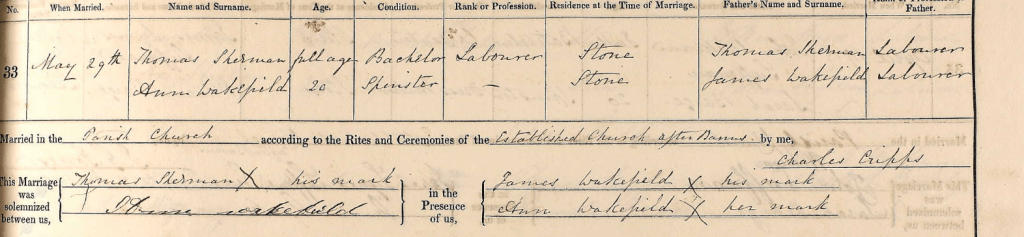 No. When Married. Name and Surname. Age. Condition. Rank or Profession. Residence at the Time of Marriage. Father's Name and Surname. Rank or Profession of Father.
33 May 29th Thomas Sherman full age Bachelor Labourer Stone Thomas Sherman Labourer
Ann Wakefield 20 Spinster — Stone James Wakefield Labourer
Married in the Parish Church according to the Rites and Ceremonies of the Established Church after Banns. by me,
Charles Cupps
This Marriage was solemnized between us, Thomas Sherman X his mark in the Presence of us, James Wakefield X his mark
wakefield Ann Wakefield X her mark